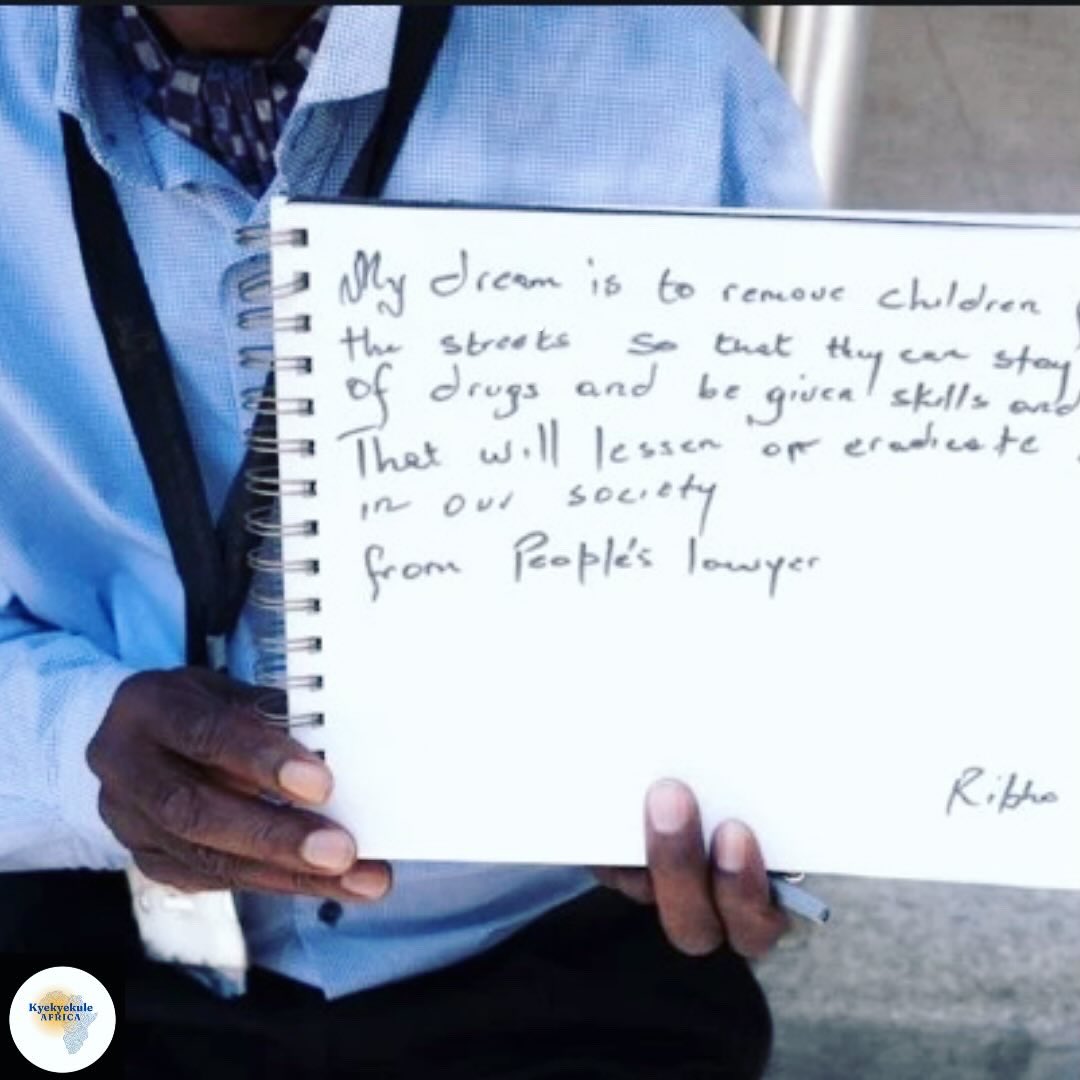 My dream is to remove children
the streets so that they can stay
of drugs and be given skills and
That will lessen or eradicate
in our society
from People's lawyer
Kyekyekule
AFRICA